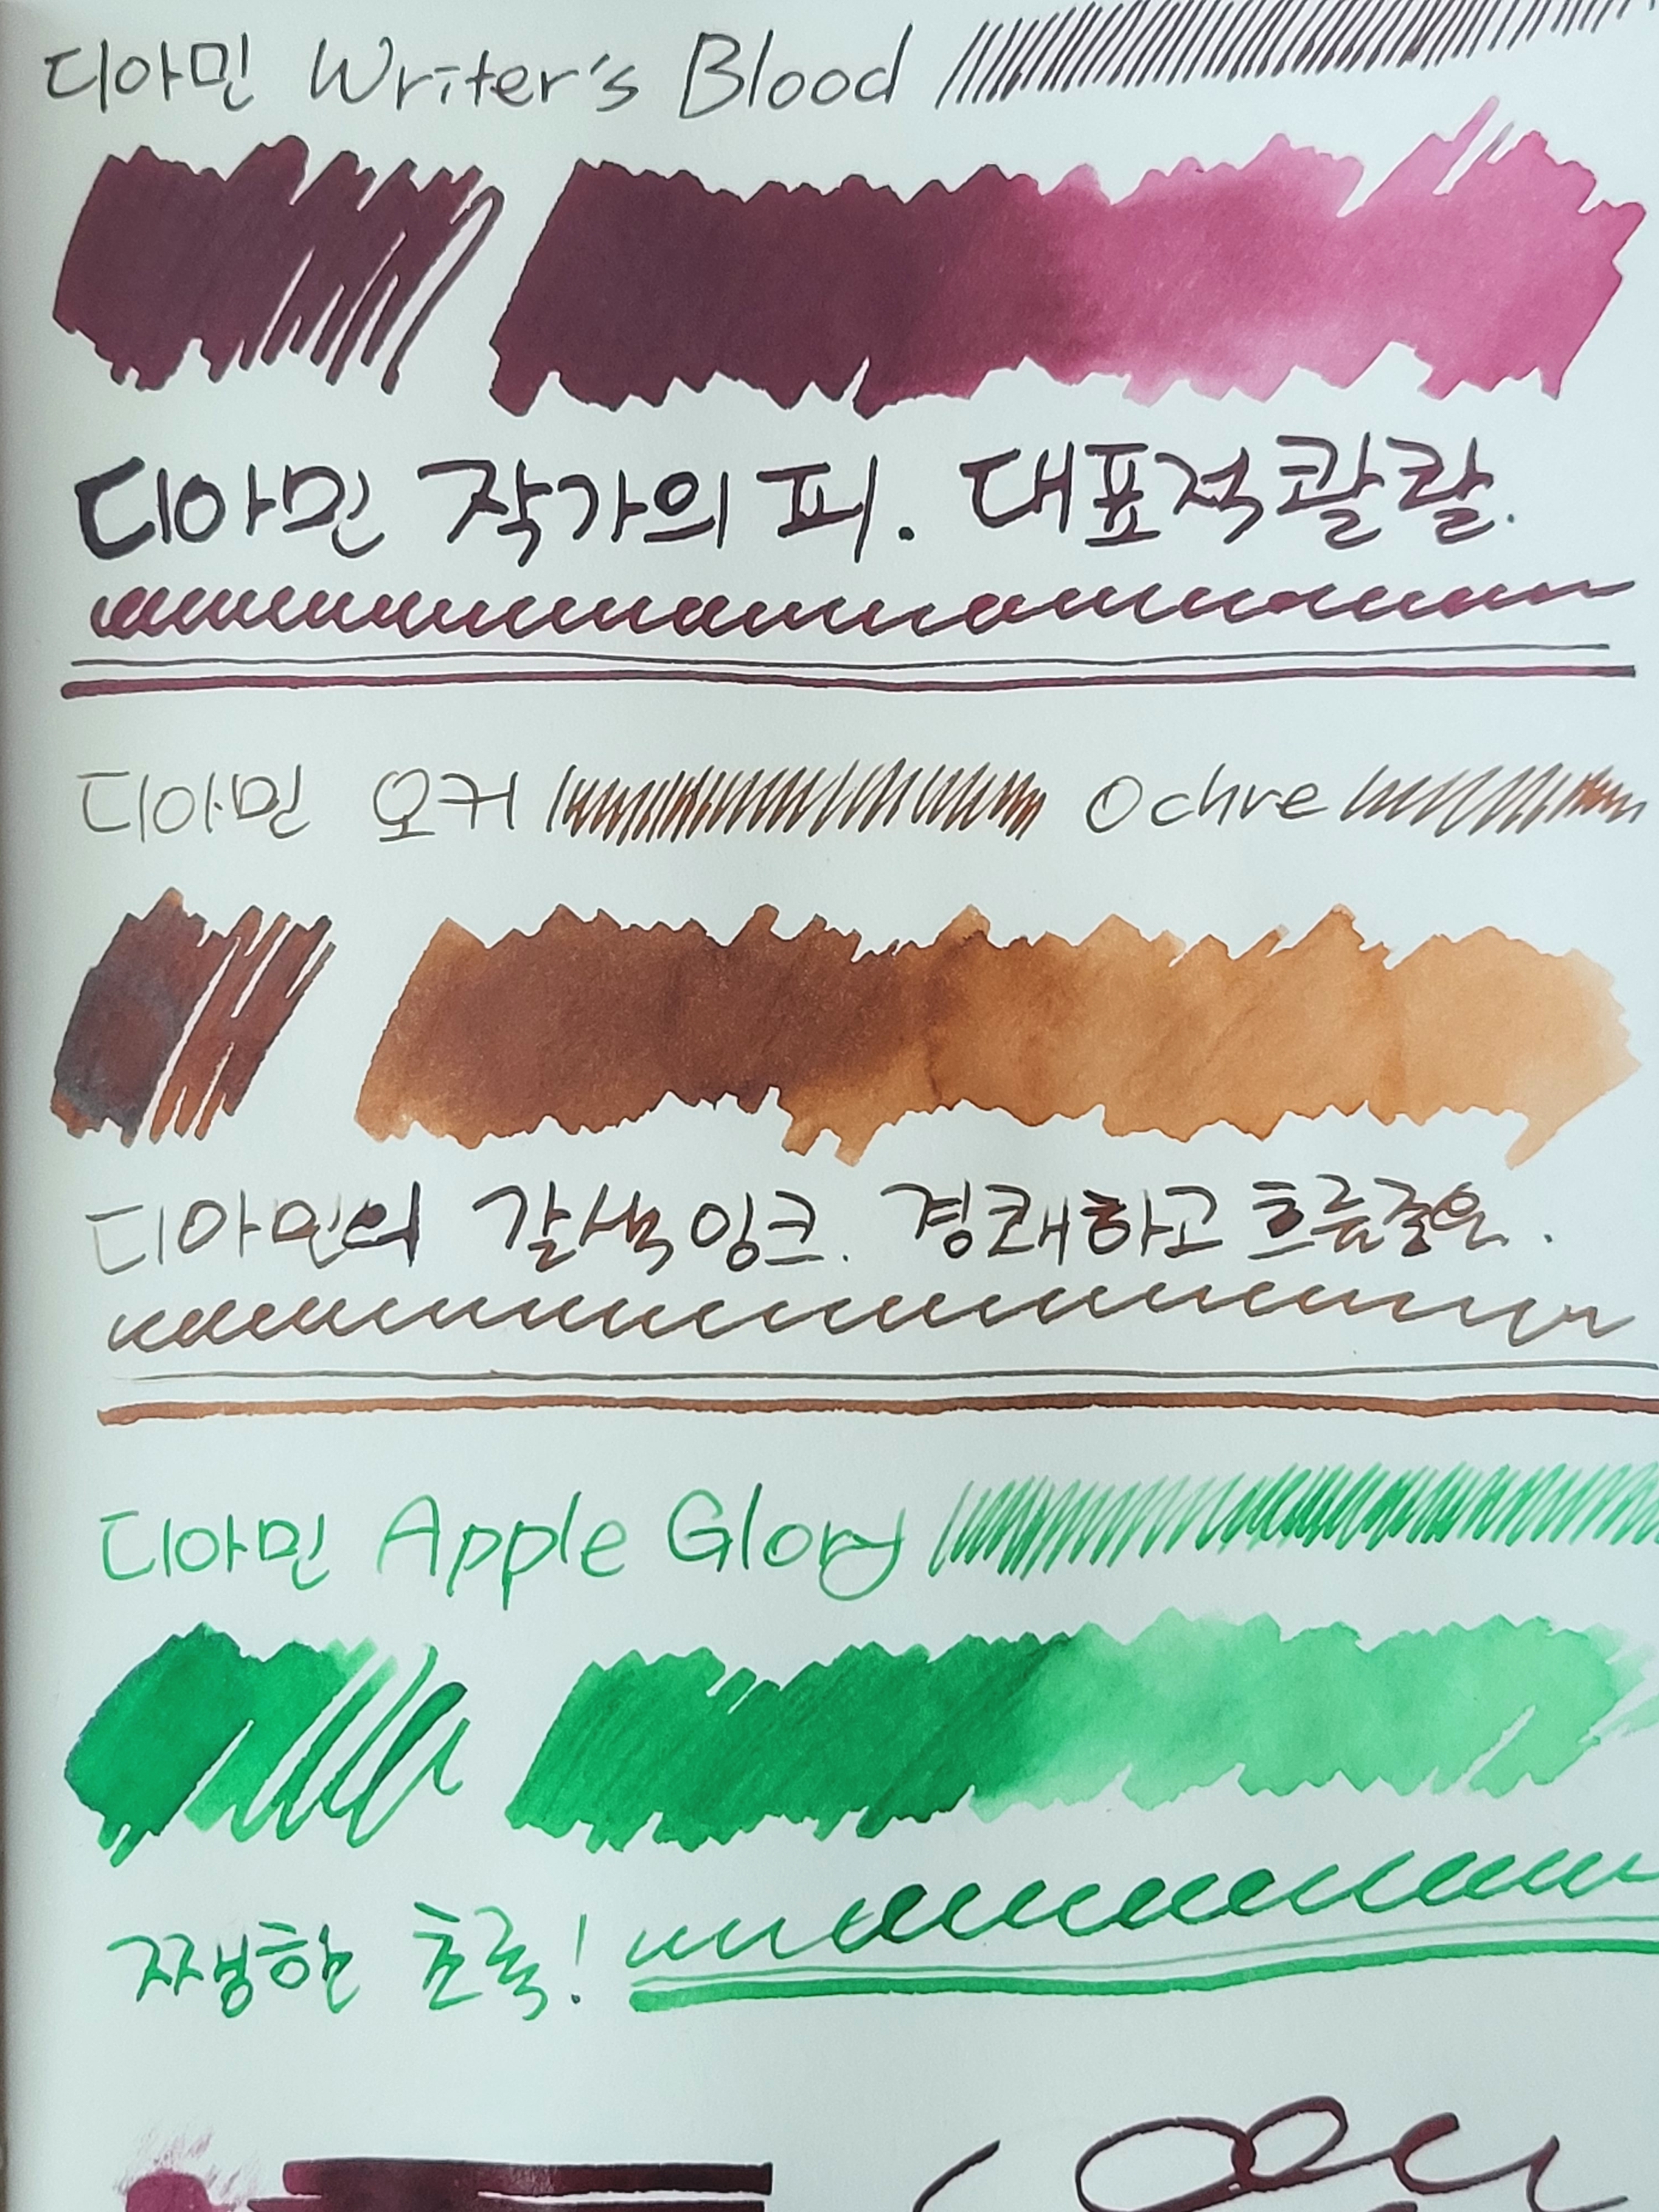 디아민 Writer's Blood
디아민 작가의 피. 대표적 콸콸.
디아민 오커 Ochre
디아민의 갈색잉크. 경쾌하고 흐름좋음.
디아민 Apple Glory
쨍한 초록!